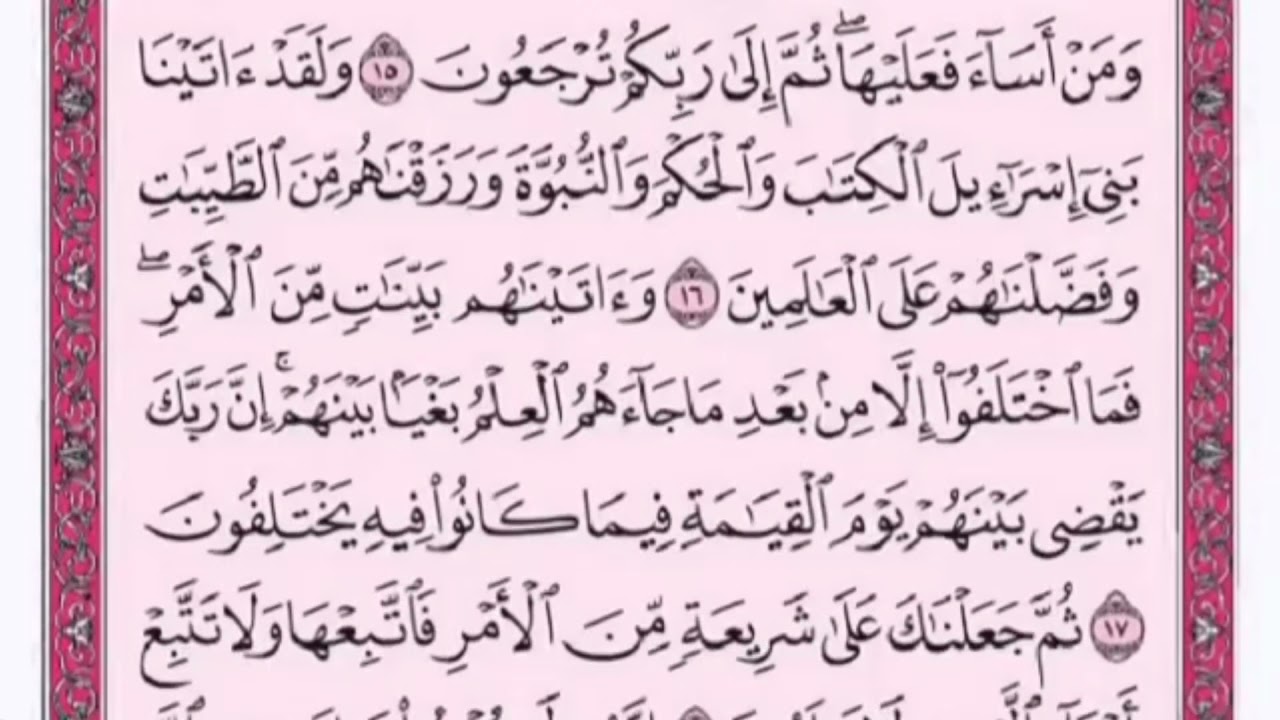 وَمَنْ أَسَآءَ فَعَلَيْهَا ۖ ثُمَّ إِلَىٰ رَبِّكُمْ تُرْجَعُونَ ١٥ وَلَقَدْ ءَاتَيْنَا
بَنِىٓ إِسْرَٰٓءِيلَ ٱلْكِتَٰبَ وَٱلْحُكْمَ وَٱلنُّبُوَّةَ وَرَزَقْنَٰهُم مِّنَ ٱلطَّيِّبَٰتِ
وَفَضَّلْنَٰهُمْ عَلَى ٱلْعَٰلَمِينَ ١٦ وَءَاتَيْنَٰهُم بَيِّنَٰتٍ مِّنَ ٱلْأَمْرِ ۖ
فَمَا ٱخْتَلَفُوٓا۟ إِلَّا مِنۢ بَعْدِ مَا جَآءَهُمُ ٱلْعِلْمُ بَغْيًۢا بَيْنَهُمْ ۚ إِنَّ رَبَّكَ
يَقْضِى بَيْنَهُمْ يَوْمَ ٱلْقِيَٰمَةِ فِيمَا كَانُوا۟ فِيهِ يَخْتَلِفُونَ
١٧ ثُمَّ جَعَلْنَٰكَ عَلَىٰ شَرِيعَةٍ مِّنَ ٱلْأَمْرِ فَٱتَّبِعْهَا وَلَا تَتَّبِعْ